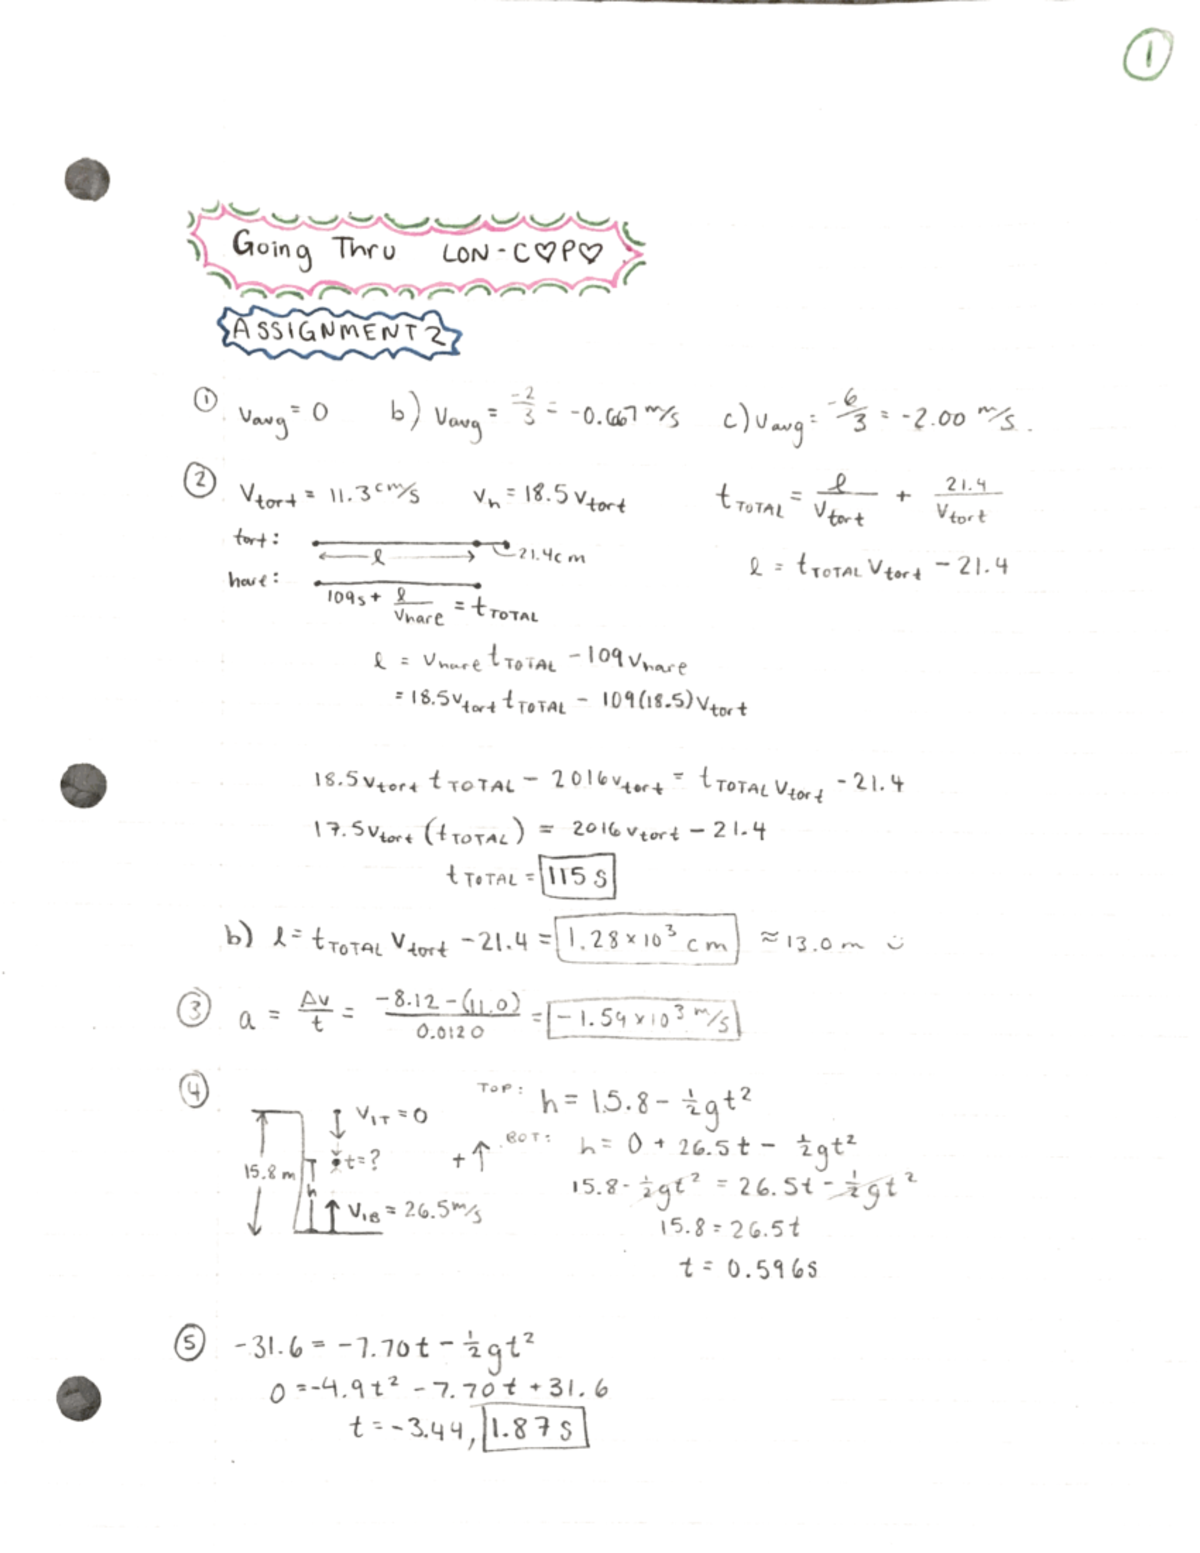 1
Going Thru LON-C♡P♡
ASSIGNMENT 2
① Vavg = 0 b) Vavg = -2/3 = -0.667 m/s c) Vavg = -6/3 = -2.00 m/s.
② Vtort = 11.3 cm/s Vh = 18.5 Vtort tTOTAL = l/Vtort + 21.4/Vtort
tort: l 21.4cm l = tTOTAL Vtort - 21.4
hare: 109s + l/Vhare = tTOTAL
l = Vhare tTOTAL - 109 Vhare
= 18.5Vtort tTOTAL - 109(18.5) Vtort
18.5Vtort tTOTAL - 2016Vtort = tTOTAL Vtort - 21.4
17.5Vtort (tTOTAL) = 2016 Vtort - 21.4
tTOTAL = 115 s
b) l = tTOTAL Vtort - 21.4 = 1.28 × 10³ cm ≈ 13.0 m ☺
③ a = Δv/t = -8.12-(11.0)/0.0120 = -1.59 × 10³ m/s
④ TOP: h = 15.8 - ½gt²
V1T = 0
BOT: h = 0 + 26.5t - ½gt²
15.8 m h t=? + ↑
15.8 - ½gt² = 26.5t - ½gt²
V1B = 26.5 m/s
15.8 = 26.5t
t = 0.596s
⑤ -31.6 = -7.70t - ½gt²
0 = -4.9t² - 7.70t + 31.6
t = -3.44, 1.87 s